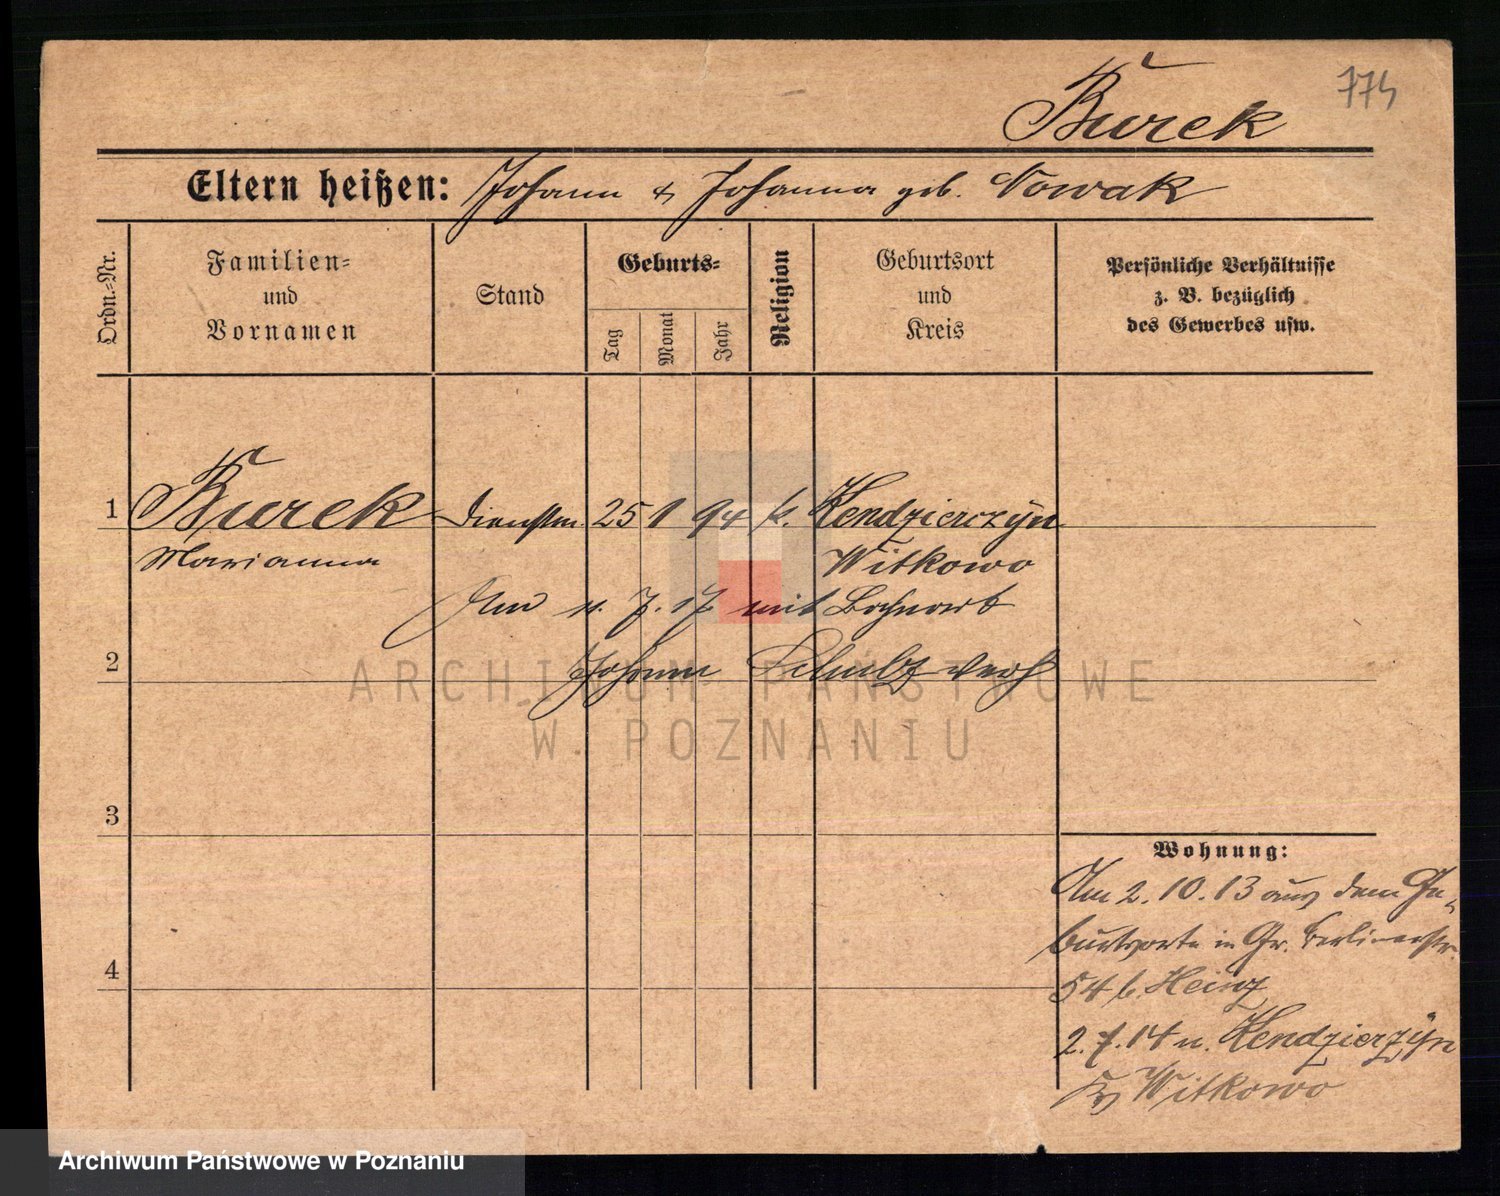 774
Burek
Eltern heißen: Johann & Johanna geb. Nowak
Ordn.-Nr.
Familien-
und
Vornamen
Stand
Geburts-
Tag
Monat
Jahr
Religion
Geburtsort
und
Kreis
Persönliche Verhältnisse
z. B. bezüglich
des Gewerbes usw.
1 Burek Dienstm. 25 1 94 k. Kendzierczyn
Marianna Witkowo
Am 11. 7. 17 mit
2 Johann verh
3
4
ARCHIWUM PAŃSTWOWE
W POZNANIU
Wohnung:
Am 2. 10. 13 aus dem Ge-
burtsorte in Gr. Berlinerstr.
54 b. Heinz
2. 7. 14 n. Kendzierzyn
Kr Witkowo
Archiwum Państwowe w Poznaniu